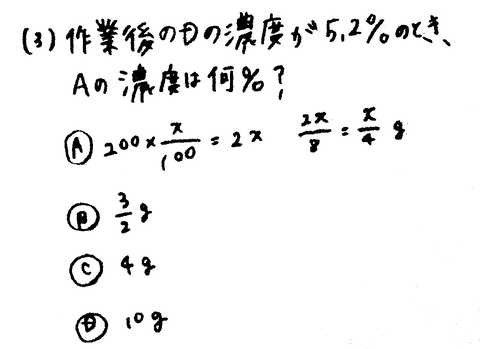 (3) 作業後のDの濃度が5.2%のとき、
Aの濃度は何%?
Ⓐ 200 × x/100 = 2x 2x/8 = x/4 g
Ⓑ 3/2 g
Ⓒ 4g
Ⓓ 10g